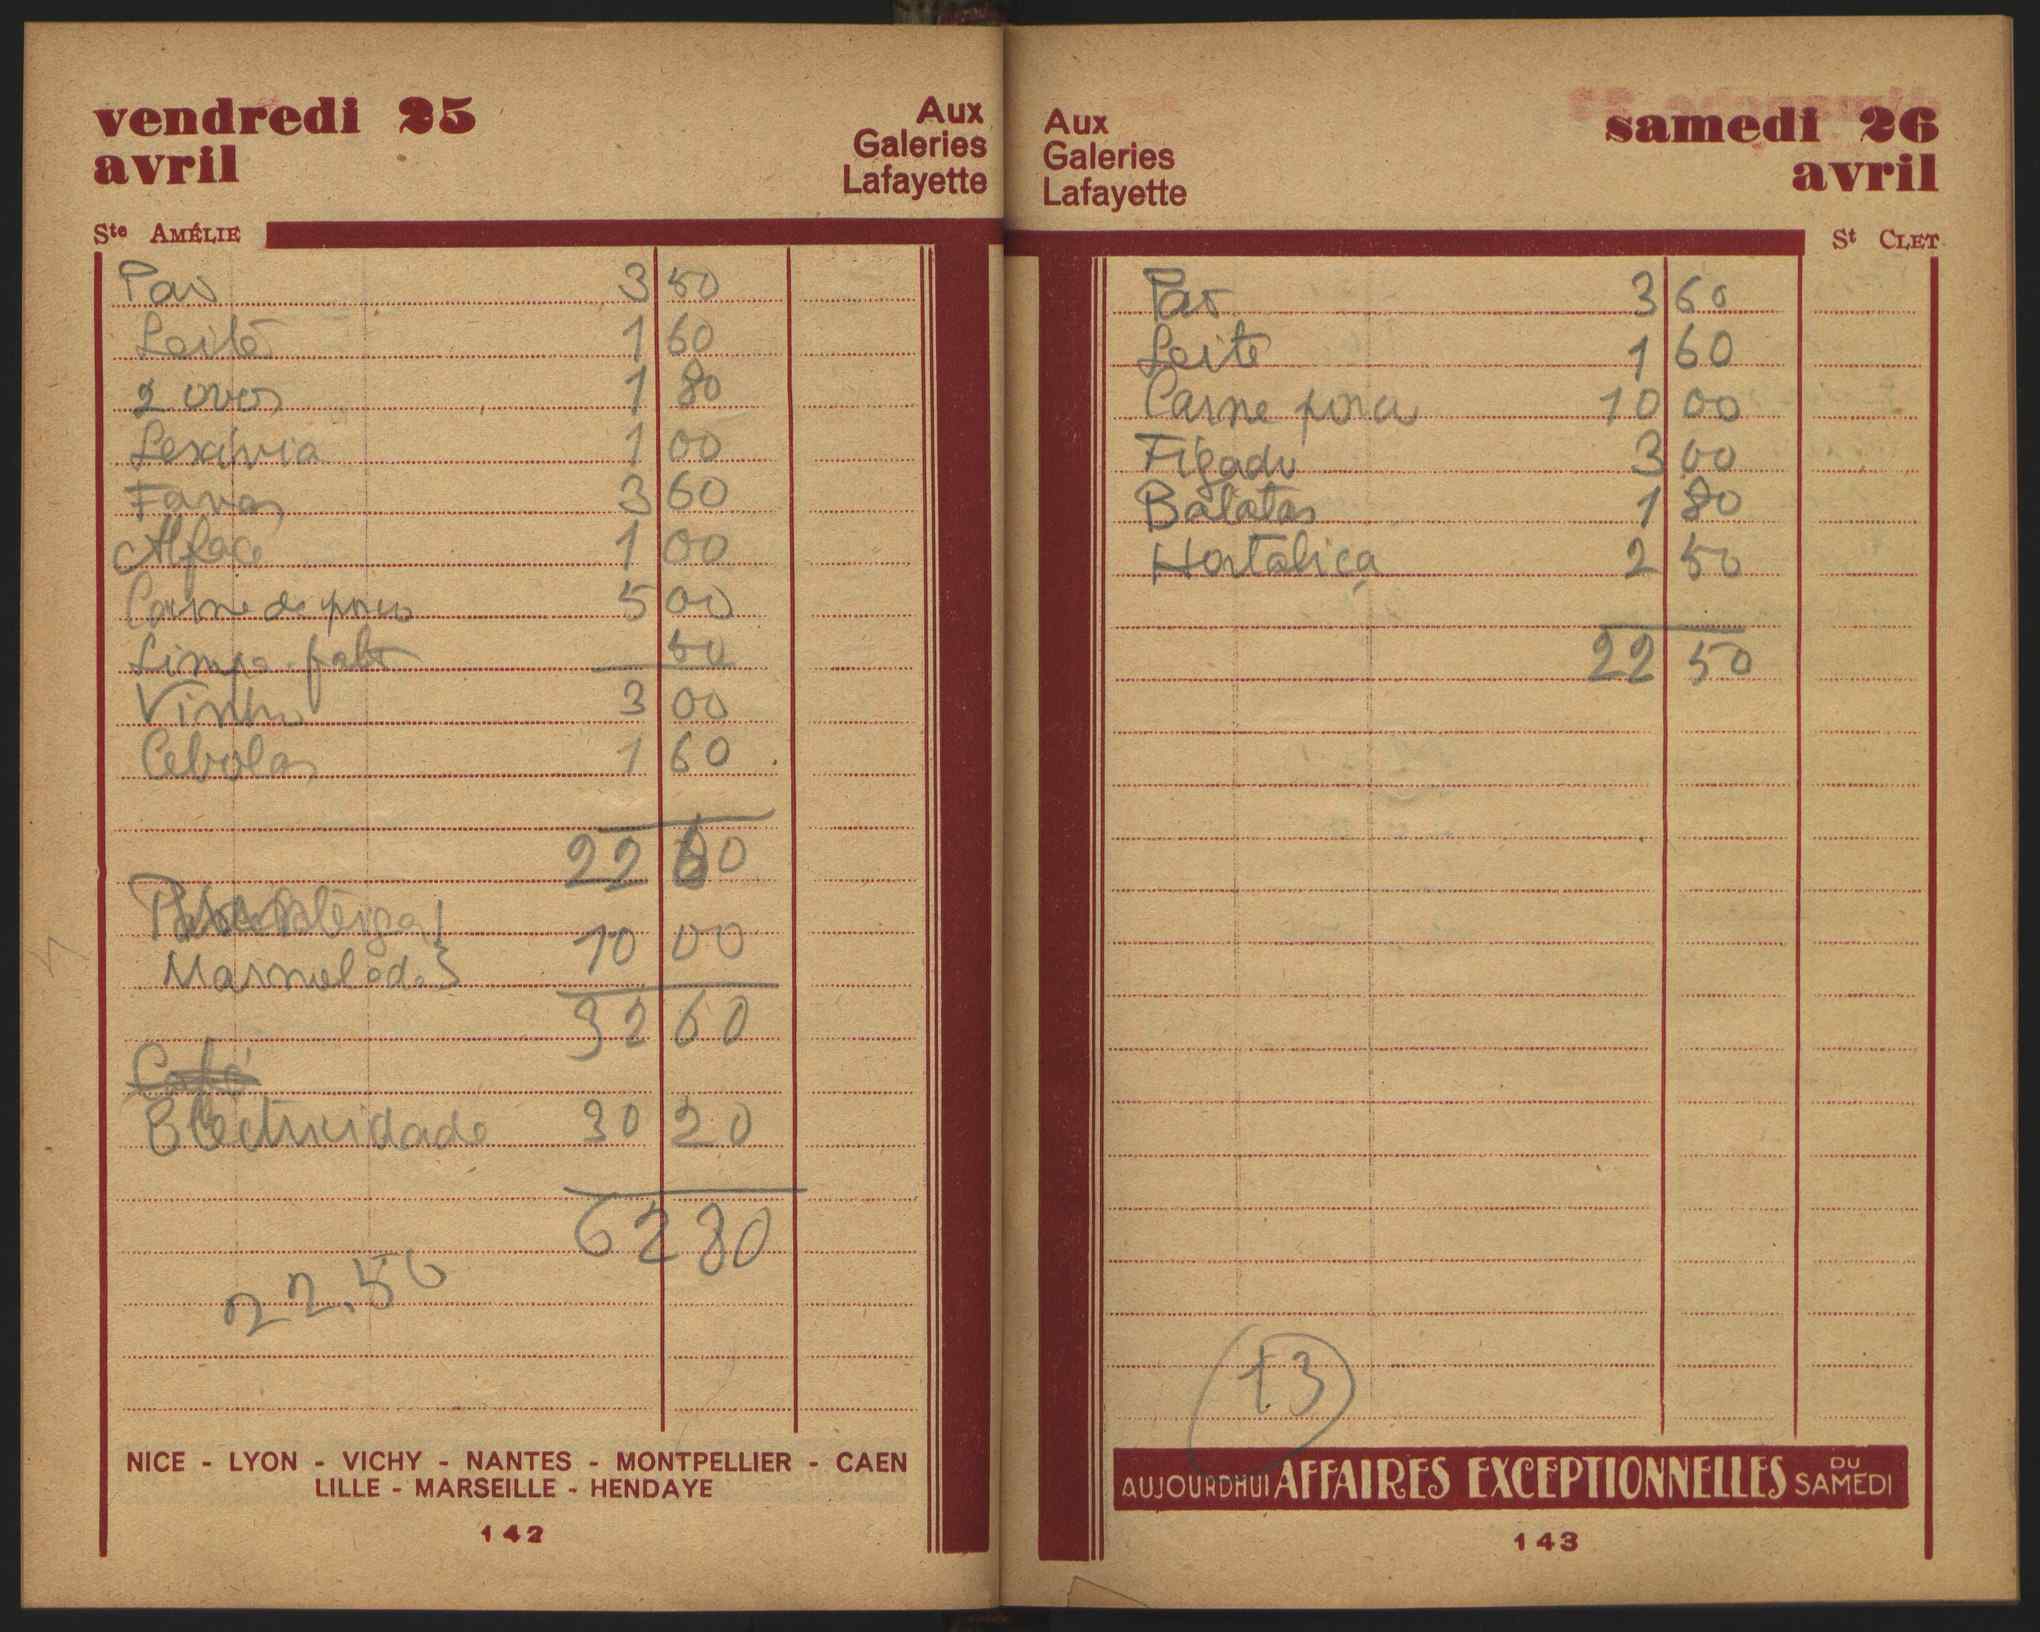 vendredi 25
avril
Aux
Galeries
Lafayette
Ste AMÉLIE
Pão 3 50
Leite 1 60
2 ovos 1 80
Lexivia 1 00
Favas 3 60
Alface 1 00
Carne de porco 5 00
Limpa fato 50
Vinho 3 00
Cebolas 1 60
22 60
Manteiga }
Marmelada } 10 00
32 60
Café
Electricidade 30 20
62 80
22.50
NICE - LYON - VICHY - NANTES - MONTPELLIER - CAEN
LILLE - MARSEILLE - HENDAYE
142
Aux
Galeries
Lafayette
samedi 26
avril
St CLET
Pão 3 60
Leite 1 60
Carne porco 10 00
Figado 3 00
Batatas 1 80
Hortaliça 2 50
22 50
13
AUJOURDHUI AFFAIRES EXCEPTIONNELLES DU SAMEDI
143